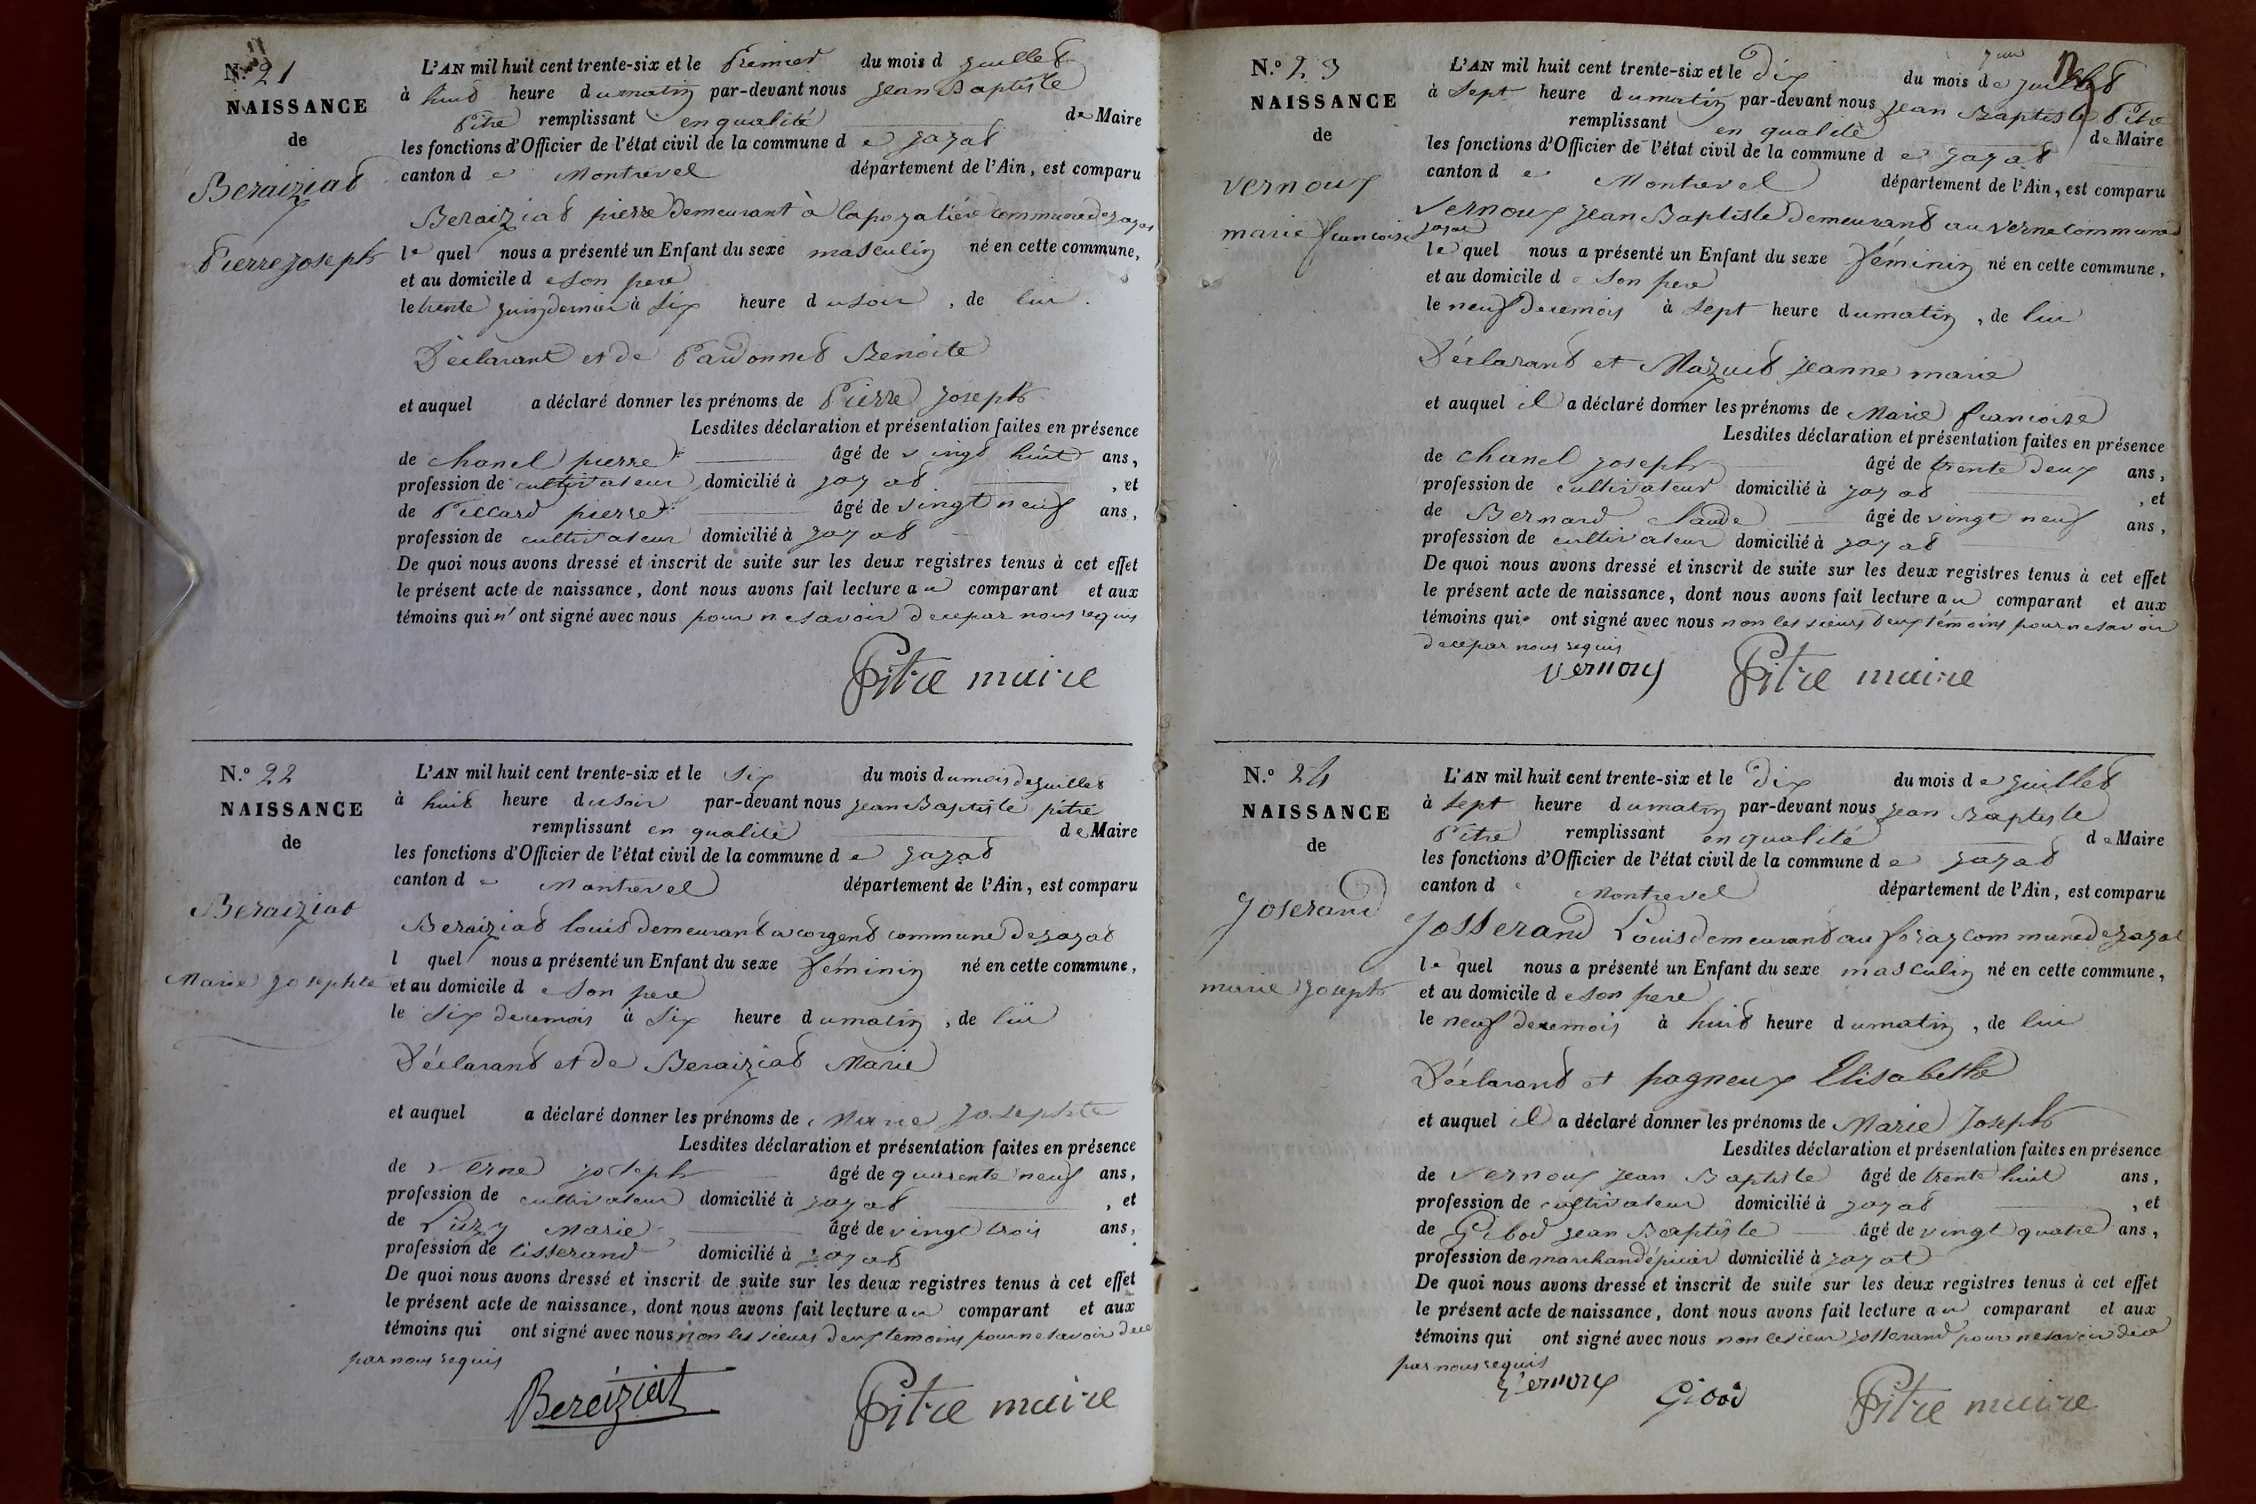 N.º 21
NAISSANCE
de
Beraiziat
Pierre joseph
L'AN mil huit cent trente-six et le Premier du mois d juillet
à huit heure du matin par-devant nous jean Baptiste
Pitre remplissant en qualité de Maire
les fonctions d'Officier de l'état civil de la commune de jayat
canton de Montrevel département de l'Ain, est comparu
Beraiziat pierre demeurant à commune de jayat
le quel nous a présenté un Enfant du sexe masculin né en cette commune,
et au domicile de son pere
le trente juin dernier à six heure du soir, de lui
Déclarant et de Pardonnet Benoite
et auquel a déclaré donner les prénoms de Pierre joseph
Lesdites déclaration et présentation faites en présence
de chanel pierre âgé de vingt huit ans,
profession de cultivateur domicilié à jayat, et
de Piccard pierre âgé de vingt neuf ans,
profession de cultivateur domicilié à jayat
De quoi nous avons dressé et inscrit de suite sur les deux registres tenus à cet effet
le présent acte de naissance, dont nous avons fait lecture au comparant et aux
témoins qui n'ont signé avec nous pour ne savoir de ce par nous requis
Pitre maire
N.º 22
NAISSANCE
de
Beraiziat
Marie josephte
L'AN mil huit cent trente-six et le six du mois du mois de juillet
à huit heure du soir par-devant nous jean Baptiste pitre
remplissant en qualité de Maire
les fonctions d'Officier de l'état civil de la commune de jayat
canton de Montrevel département de l'Ain, est comparu
Beraiziat louis demeurant a corgent commune de jayat
l quel nous a présenté un Enfant du sexe féminin né en cette commune,
et au domicile de son pere
le six de ce mois à six heure du matin, de lui
Déclarant et de Beraiziat Marie
et auquel a déclaré donner les prénoms de Marie Josephte
Lesdites déclaration et présentation faites en présence
de verne joseph âgé de quarente neuf ans,
profession de cultivateur domicilié à jayat, et
de Luzy Marie âgé de vingt trois ans,
profession de tisserand domicilié à jayat
De quoi nous avons dressé et inscrit de suite sur les deux registres tenus à cet effet
le présent acte de naissance, dont nous avons fait lecture au comparant et aux
témoins qui ont signé avec nous non les sieurs deux temoins pour ne savoir de ce
par nous requis
Beraiziat Pitre maire
N.º 23
NAISSANCE
de
vernoux
marie francoise
L'AN mil huit cent trente-six et le dix du mois de juillet
à sept heure du matin par-devant nous jean Baptiste Pitre
remplissant en qualité de Maire
les fonctions d'Officier de l'état civil de la commune de jayat
canton de Montrevel département de l'Ain, est comparu
vernoux jean Baptiste demeurant au verne commune d
jayat
le quel nous a présenté un Enfant du sexe féminin né en cette commune,
et au domicile de son pere
le neuf de ce mois à sept heure du matin, de lui
Déclarant et Mazuit jeanne marie
et auquel il a déclaré donner les prénoms de Marie francoise
Lesdites déclaration et présentation faites en présence
de chanel joseph âgé de trente deux ans,
profession de cultivateur domicilié à jayat, et
de Bernard claude âgé de vingt neuf ans,
profession de cultivateur domicilié à jayat
De quoi nous avons dressé et inscrit de suite sur les deux registres tenus à cet effet
le présent acte de naissance, dont nous avons fait lecture au comparant et aux
témoins qui ont signé avec nous non les sieurs deux témoins pour ne savoir
de ce par nous requis
vernoux Pitre maire
N.º 24
NAISSANCE
de
Joserand
marie Joseph
L'AN mil huit cent trente-six et le dix du mois de juillet
à sept heure du matin par-devant nous jean Baptiste
Pitre remplissant en qualité de Maire
les fonctions d'Officier de l'état civil de la commune de jayat
canton d Montrevel département de l'Ain, est comparu
Josserand Louis demeurant au commune de jayat
le quel nous a présenté un Enfant du sexe masculin né en cette commune,
et au domicile de son pere
le neuf de ce mois à huit heure du matin, de lui
Déclarant et pagneux Elisabethe
et auquel il a déclaré donner les prénoms de Marie Joseph
Lesdites déclaration et présentation faites en présence
de vernoux jean Baptiste âgé de trente huit ans,
profession de cultivateur domicilié à jayat, et
de Gibod jean Baptiste âgé de vingt quatre ans,
profession de marchand épicier domicilié à jayat
De quoi nous avons dressé et inscrit de suite sur les deux registres tenus à cet effet
le présent acte de naissance, dont nous avons fait lecture au comparant et aux
témoins qui ont signé avec nous non le sieur josserand pour ne savoir de ce
par nous requis
vernoux Gibod Pitre maire